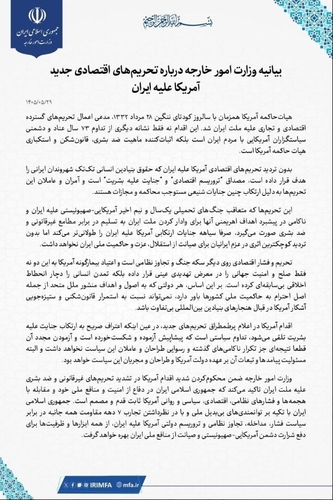 جمهوری اسلامی ایران
وزارت امور خارجه
بیانیه وزارت امور خارجه درباره تحریم‌های اقتصادی جدید
آمریکا علیه ایران
۱۴۰۵/۰۵/۲۹
هیات‌حاکمه آمریکا همزمان با سالروز کودتای ننگین ۲۸ مرداد ۱۳۳۲، مدعی اعمال تحریم‌های گسترده
اقتصادی و تجاری علیه ملت ایران شد. این اقدام نه فقط نشانه دیگری از تداوم ۷۳ سال عناد و دشمنی
سیاستگزاران آمریکایی با مردم ایران است بلکه اثبات‌کننده ماهیت ضد بشری، قانون‌شکن و استکباری
هیات حاکمه آمریکا است.
بدون تردید تحریم‌های اقتصادی آمریکا علیه ایران که حقوق بنیادین انسانی تک‌تک شهروندان ایرانی را
هدف قرار داده است، مصداق "تروریسم اقتصادی" و "جنایت علیه بشریت" است و آمران و عاملان این
تحریم‌ها به دلیل ارتکاب چنین جنایات شنیعی مستوجب محاکمه و مجازات هستند.
این تحریم‌ها که متعاقب جنگ‌های تحمیلی یک‌سال و نیم اخیر آمریکایی-صهیونیستی علیه ایران و
ناکامی در پیشبرد اهداف اهریمنی آنها برای وادار کردن ملت ایران به تسلیم در برابر مطامع غیرقانونی و
ضد بشری صورت می‌گیرد، صرفا سیاهه جنایات ارتکابی آمریکا علیه ایران را طولانی‌تر می‌کند اما بدون
تردید کوچکترین اثری در عزم ایرانیان برای صیانت از استقلال، عزت و حاکمیت ملی ایران نخواهد داشت.
تحریم و فشار اقتصادی روی دیگر سکه جنگ و تجاوز نظامی است و اعتیاد بیمارگونه آمریکا به این دو نه
فقط صلح و امنیت جهانی را در معرض تهدیدی عینی قرار داده بلکه تمدن انسانی را دچار انحطاط
اخلاقی بی‌سابقه‌ای کرده است. بر این اساس، هر دولتی که به اصول و اهداف منشور ملل متحد از جمله
اصل احترام به حاکمیت ملی کشورها باور دارد، نمی‌تواند نسبت به استمرار قانون‌شکنی و ستیزه‌جویی
آشکار آمریکا در قبال هنجارهای بنیادین بین‌المللی بی‌تفاوت باشد.
اقدام آمریکا در اعلام پرطمطراق تحریم‌های جدید، در عین اینکه اعتراف صریح به ارتکاب جنایت علیه
بشریت تلقی می‌شود، تداوم سیاستی است که پیشاپیش آزموده و شکست‌خورده است و آزمودن مجدد آن
قطعا نتیجه‌ای جز تکرار ناکامی‌های گذشته و رسوایی طراحان و عاملان این سیاست نخواهد داشت و البته
مسئولیت پیامدها و تبعات آن بر عهده دولت آمریکا و طراحان و مجریان این سیاست خواهد بود.
وزارت امور خارجه ضمن محکوم‌کردن شدید اقدام آمریکا در تشدید تحریم‌های غیرقانونی و ضد بشری
علیه ملت ایران تاکید می‌کند که جمهوری اسلامی ایران در دفاع از امنیت و منافع ملی خود و مقابله با
هجمه‌ها و فشارهای نظامی، اقتصادی، سیاسی و روانی آمریکا ثابت قدم و مصمم است. جمهوری اسلامی
ایران با تکیه بر توانمندی‌های بی‌بدیل ملی و با در نظرداشتن تجارب ۷ دهه مقاومت همه جانبه در برابر
سیاست فشار، مداخله، تجاوز نظامی و تروریسم دولتی آمریکا علیه ایران، از همه ابزارها و ظرفیت‌ها برای
دفع شرارت دشمن آمریکایی-صهیونیستی و صیانت از منافع ملی ایران بهره خواهد گرفت.
IRIMFA
mfa.ir